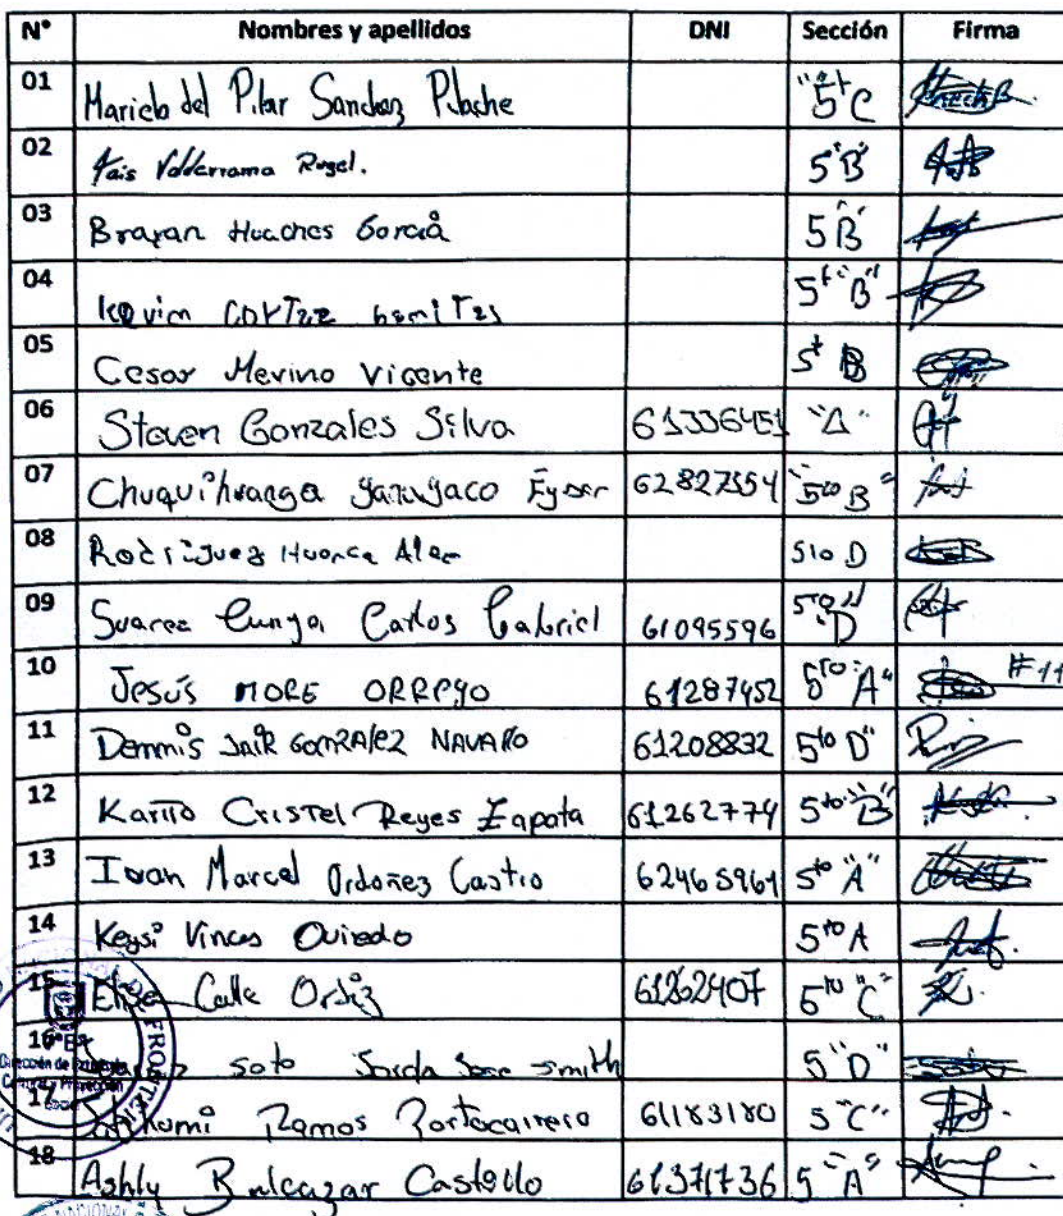 N° Nombres y apellidos DNI Sección Firma
01 Mariela del Pilar Sanchez Pilache "5t C"
02 Tais Valderrama Rugel. 5"B"
03 Brayan Huaches Garcia 5"B"
04 Kevin CORTEZ benites 5t"B"
05 Cesar Merino Vicente 5t B
06 Steven Gonzales Silva 61336451 "A"
07 Chuquihuanga 62827554 "5to B"
08 Rodriguez Huanca Alan 5to D
09 Suarez Cunya Carlos Gabriel 61095596 5to "D"
10 Jesús MORE ORREYO 61287452 5to "A" #11
11 Dennis JAIR GONZALEZ NAVARRO 61208832 5to D"
12 Karito Cristel Reyes Zapata 61262774 5to "B"
13 Ivan Marcel Ordoñez Castro 62465961 5to "A"
14 Keysi Vinces Oviedo 5to A
15 Elise Calle Ortiz 61262407 5to "C"
16 soto Jose Smith 5"D"
17 Ramos Portocarrero 61183180 5"C"
18 Ashly Balcazar Castillo 61371736 5"A"
DE FRONTERA